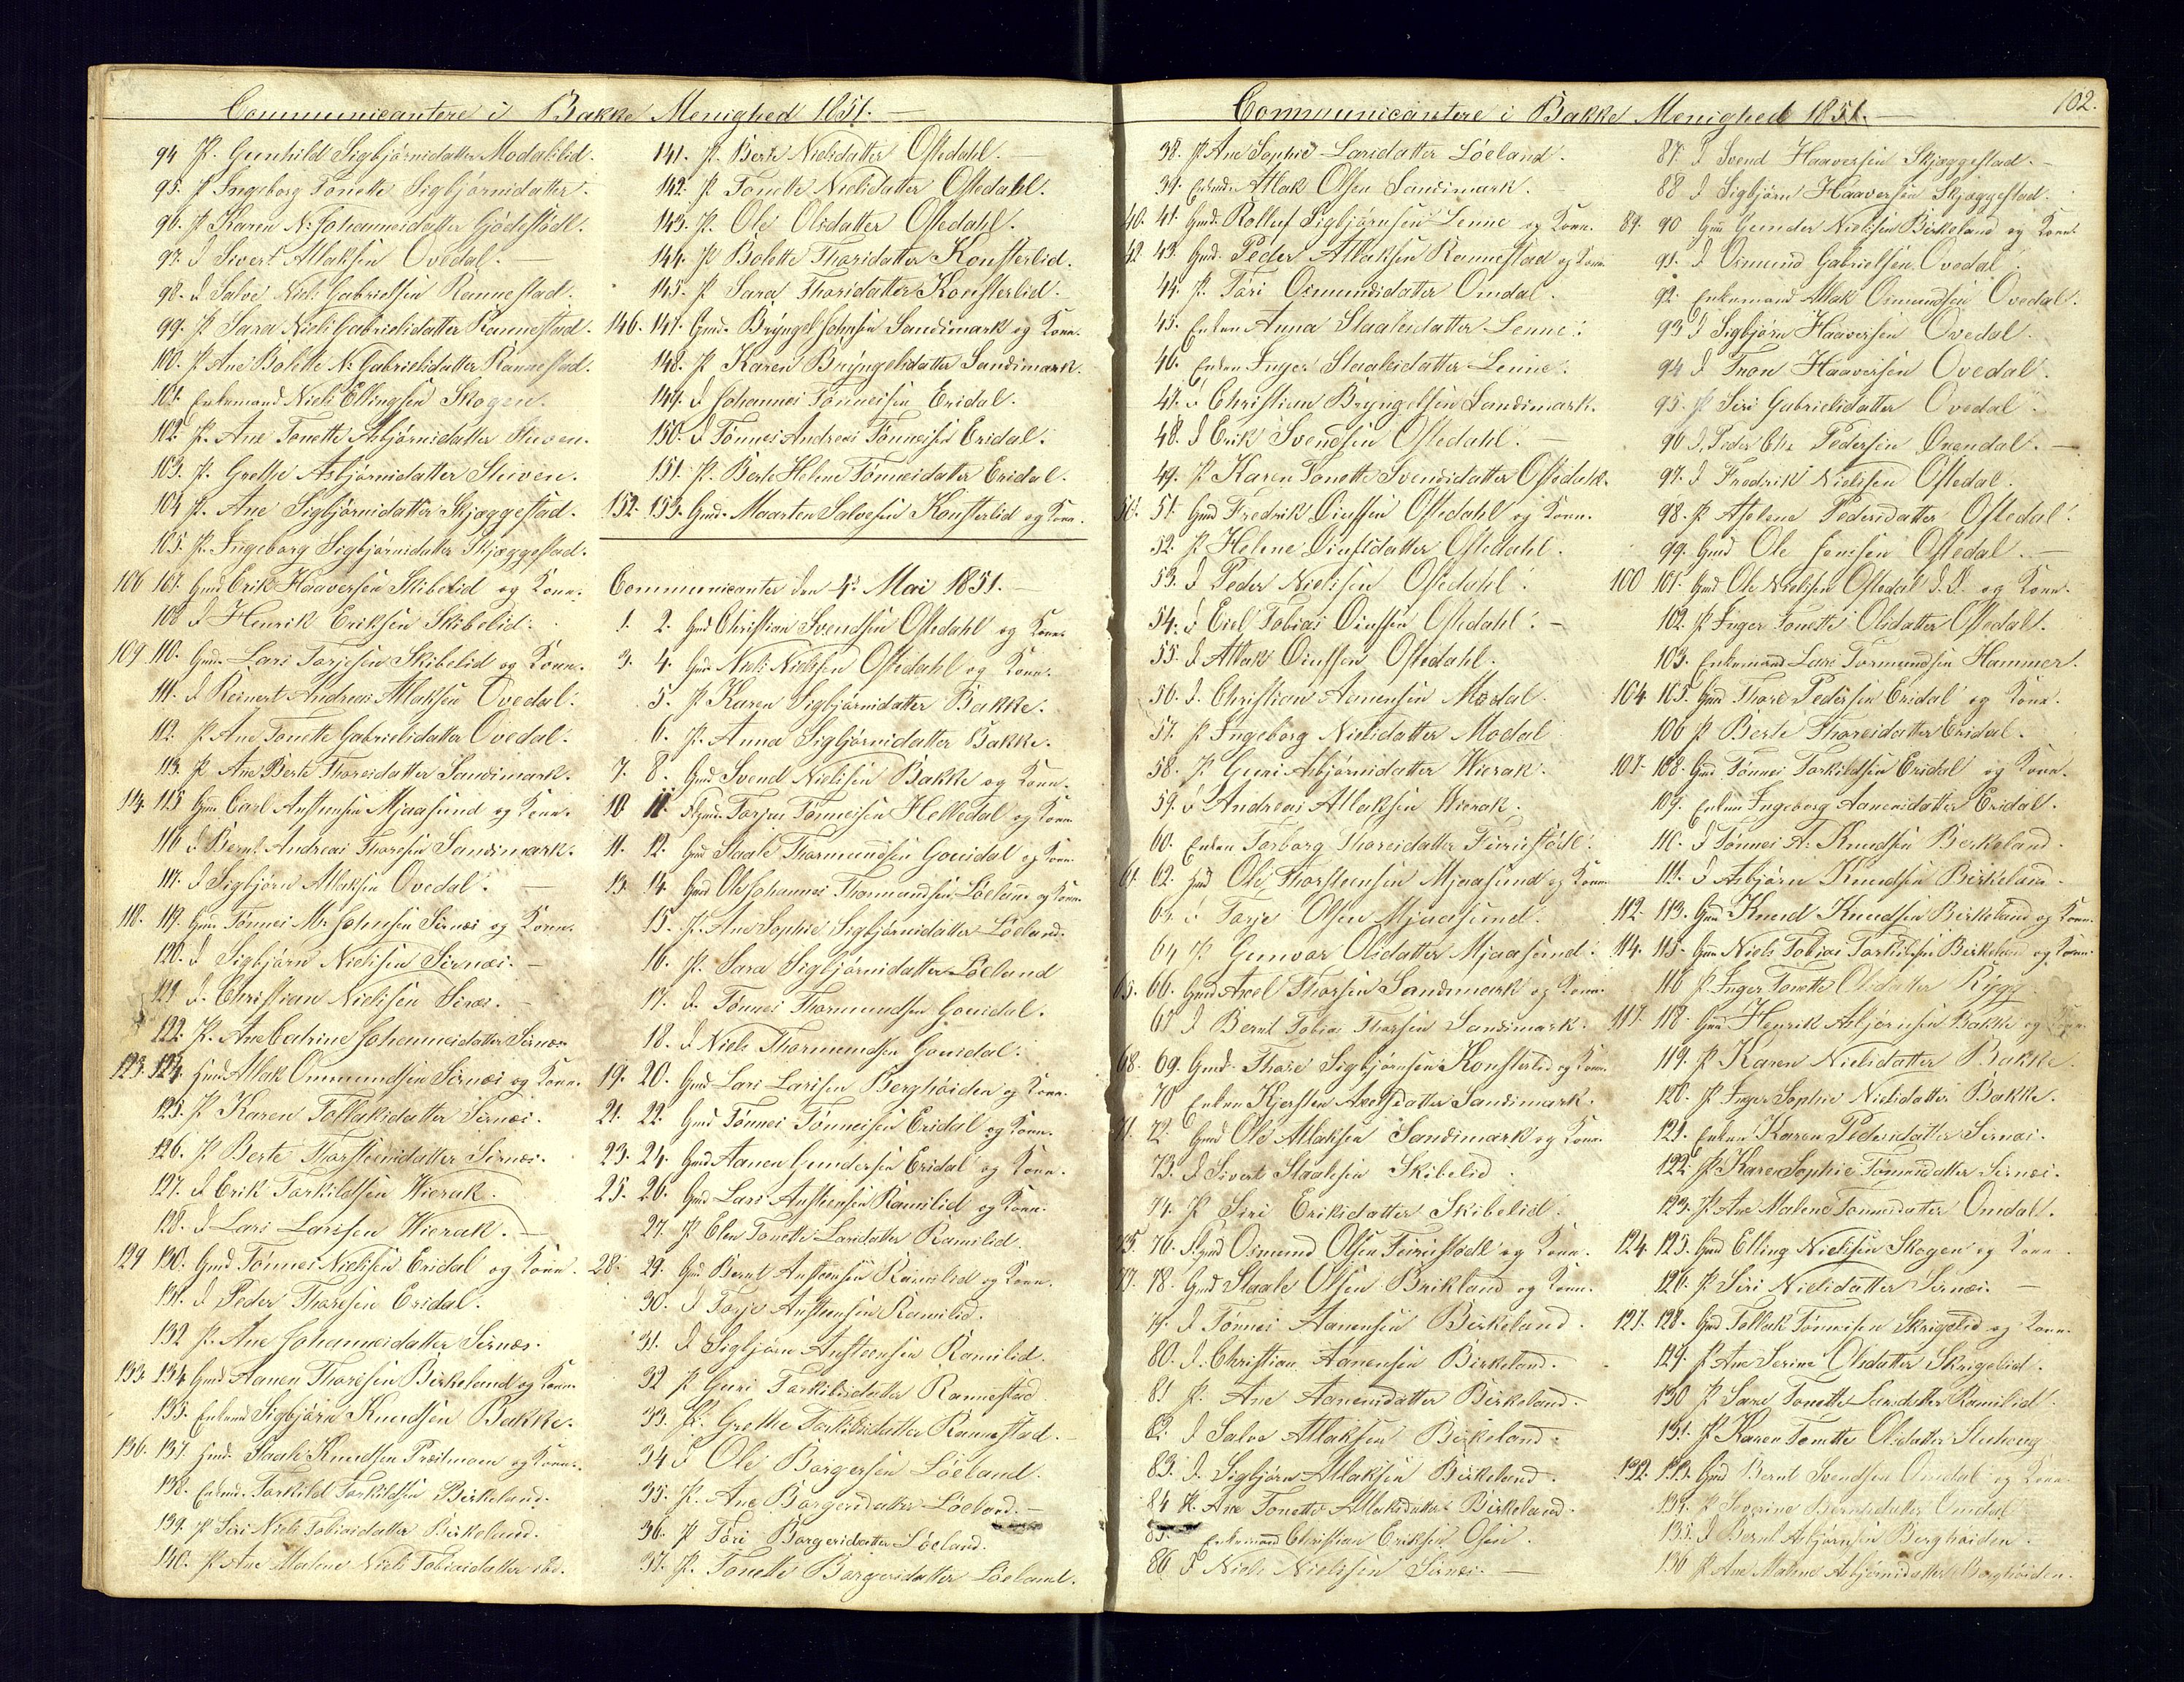 Communicantere i Bakke Menighed 1851.
94 P. Gunhild Sigbjørnsdatter Modalslid.
95. P Ingeborg Tonette Sigbjørnsdatter.
96. P Karen N. Johannesdatter Gjødestødl.
97. D Sivert Atlaksen Ovedal.
98. D Salve Niels Gabrielsen Rannestad.
99. P Sara Niels Gabrielsdatter Rannestad.
100. P. Ane Bolette N. Gabrielsdatter Rannestad.
101. Enkemand Niels Ellingsen Skogen.
102. P. Ane Tonette Asbjørnsdatter Stuven.
103. P. Grethe Asbjørnsdatter Stuven.
104 P. Ane Sigbjørnsdatter Skjæggestad.
105. P. Ingeborg Sigbjørnsdatter Skjæggestad.
106 107. Gmd Erik Haaversen Skibelid og Kone.
108 D Henrik Eriksen Skibelid.
109 110. Gmd. Lars Torjesen Skibelid og Kone.
111. D Reinert Andreas Atlaksen Ovedal.
112. P Ane Tonette Gabrielsdatter Ovedal.
113. P Ane Berte Thoresdatter Sandsmark.
114. 115 Gmd Carl Anstensen Mjaasund og Kone.
116 D Bernt Andreas Thoresen Sandsmark.
117. D Sigbjørn Atlaksen Ovedal.
118. 119. Gmd. Tønnes M. Johnsen Sirnæs og Kone.
120. D Sigbjørn Nielsen Sirnæs.
121 D. Christian Nielsen Sirnæs.
122. P. Ane Catrine Johannesdatter Sirnæs
123. 124 Gmd Atlak Ommundsen Sirnæs og Kone.
125. P Karen Tollaksdatter Sirnæs.
126. P Berte Thorsteensdatter Sirnæs.
127. D Erik Torkildsen Wierak.
128. D Lars Larssen Wierak.
129 130. Gmd. Tønnes Nielsen Eridal og Kone.
131. D Peder Thoresen Eridal.
132 P. Ane Johannesdatter Sirnæs.
133 134 Gmd Aanen Thoresen Birkeland og Kone
135. Enkemd Sigbjørn Knudsen Bakke.
136. 137 Gmd. Staale Knudsen og Kone.
138. Enkmd. Torkild Torkildsen Birkeland.
139. P Siri Niels Tobiasdatter Birkeland.
140. P Ane Malene Niels Tobiasdatter ibd.
141. P. Berte Nielsdatter Oftedahl.
142. P Tonette Nielsdatter Oftedahl.
143. P. Ole Olsdatter Oftedahl.
144. P Bolette Thorsdatter Konsterlid.
145. P Sara Thorsdatter Konsterlid.
146. 147. Gmd. Bryngel Johnsen Sandsmark og Kone.
148. P Karen Bryngelsdatter Sandsmark.
149. D Johannes Tønnesen Eridal.
150. D Tønnes Andreas Tønnesen Eridal.
151. P. Berte Helene Tønnesdatter Eridal.
152. 153. Gmd. Maarten Salvesen Konsterlid og Kone.
Communicanter den 4de Mai 1851.
1. 2. Gmd Christian Svendsen Oftedahl og Kone.
3. 4. Gmd Niels Nielsen Oftedahl og Kone.
5. P Karen Sigbjørnsdatter Bakke.
6. P. Anna Sigbjørnsdatter Bakke.
7. 8. Gmd Svend Nielsen Bakke og Kone.
10 11. Torjus Tønnesen Helledal og Kone
11. 12. Gmd Staale Thormundsen Gousdal og Kone
13. 14. Gmd Ole Johannes Thormundsen Løeland og Kone
15. P. Ane Sophie Sigbjørnsdatter Løeland.
16. P. Sara Sigbjørnsdatter Løeland
17. D. Tønnes Thormundsen Gousdal.
18. D Niels Thormundsen Gousdal.
19. 20. Gmd Lars Larssen Berghøiden og Kone.
21. 22. Gmd Tønnes Tønnesen Eridal og Kone.
23. 24. Gmd Aanen Gundersen Eridal og Kone.
25. 26. Gmd Lars Anstensen Ramslid og Kone.
27. P Elen Tonette Larsdatter Ramslid.
28. 29. Gmd Bernt Anstensen Ramslid og Kone.
30. D Torje Anstensen Ramslid.
31. D Sigbjørn Anstensen Ramslid.
32 P Guri Torkildsdatter Rannestad
33. P. Grethe Torkildsdatter Rannestad.
34 D Ole Borgersen Løeland.
35. P. Ane Borgersdatter Løeland.
36. P Tori Borgersdatter Løeland.
37. P. Tonette Borgersdatter Løeland.
Communicantere i Bakke Menighed 1851.
102.
38. P Ane Sophie Larsdatter Løeland.
39. Enkmd. Atlak Olsen Sandsmark.
40. 41. Gmd. Rollef Sigbjørnsen Lenne og Kone.
42 43. Gmd. Peder Atlaksen Rannestad og Kone
44. P. Tori Osmundsdatter Omdal.
45. Enken Anna Staalesdatter Lenne.
46. Enken Inger Staalesdatter Lenne.
47. D Christian Bryngelsen Sandsmark.
48. D Erik Svendsen Oftedahl.
49. P Karen Tonette Svendsdatter Oftedahl.
50. 51. Gmd Fredrik Diussen Oftedahl og Kone.
52. P Helene Diusdatter Oftedahl.
53. D Peder Nielsen Oftedahl.
54. D Eiel Tobias Diussen Oftedahl.
55. D Atlak Diussen Oftedahl.
56. D. Christian Aanensen Modal.
57. P Ingeborg Nielsdatter Modal
58. P Guri Asbjørnsdatter Wierak.
59. D Andreas Atlaksen Wierak.
60. Enken Torborg Thoresdatter Feirestødl.
61. 62. Gmd Ole Thorsteensen Mjaasund og Kone
63. D Torje Olsen Mjaasund.
64 P Gunvor Olsdatter Mjaasund.
65. 66. Gmd Axel Thorsen Sandsmark og Kone.
67 D Bernt Tobias Thorsen Sandsmark.
68. 69. Gmd. Thore Sigbjørnsen Konsterlid og Kone.
70 Enken Kjersten Axelsdatter Sandsmark.
71. 72. Gmd Ole Atlaksen Sandsmark og Kone.
73. D Sivert Staalesen Skibelid.
74. P Siri Eriksdatter Skibelid.
75. 76. Osmund Olsen Feirestødl og Kone.
77. 78. Gmd Staale Olsen Birkland og Kone.
79. D Tønnes Aanensen Birkeland.
80. D. Christian Aanensen Birkeland.
81 P. Ane Aanensdatter Birkeland.
82. D Salve Atlaksen Birkeland.
83. D. Sigbjørn Atlaksen Birkeland.
84 P. Ane Tonette Atlaksdatter Birkeland.
85. Enkemand Christian Eriksen Osen.
86 D Niels Nielsen Sirnæs.
87. D Svend Haaversen Skjæggestad.
88 D Sigbjørn Haaversen Skjæggestad.
89. 90 Gmd Gunder Nielsen Birkeland og Kone.
91. D Osmund Gabrielsen Ovedal.
92. Enkemand Atlak Osmundsen Ovedal.
93 D Sigbjørn Haaversen Ovedal.
94 D Tron Haaversen Ovedal.
95. P Siri Gabrielsdatter Ovedal.
96 D. Peder Chr Pedersen Øxendal.
97. D Fredrik Nielsen Oftedal.
98. P Aselene Pedersdatter Oftedal.
99. Gmd Ole Jonsen Oftedal.
100 101. Gmd Ole Nielsen Oftedal og Kone.
102. P Inger Tonette Olsdatter Oftedal.
103. Enkemand Lars Tormundsen Hammer.
104. 105. Gmd Thore Pedersen Eridal og Kone.
106 P Berte Thoresdatter Eridal.
107. 108. Gmd Tønnes Torkildsen Eridal og Kone.
109. Enken Ingeborg Aanensdatter Eridal.
110. D Tønnes A. Knudsen Berkeland.
111. D Asbjørn Knudsen Birkeland.
112. 113. Gmd Knud Knudsen Birkeland og Kone.
114. 115. Gmd Niels Tobias Torkildsen Birkeland og Kone.
116 P Inger Tonette Olsdatter Rygg
117. 118. Gmd Henrik Asbjørnsen Bakke og Kone.
119. P Karen Nielsdatter Bakke.
120. P Inger Sophie Nielsdatter Bakke.
121. Enken Karen Pedersdatter Sirnæs.
122. P Karen Sophie Tønnesdatter Sirnæs.
123. P Ane Malene Tønnesdatter Omdal.
124. 125. Gmd Elling Nielsen Skogen og Kone.
126. P Siri Nielsdatter Sirnæs.
127. 128. Gmd Tollak Tønnesen Skrigelid og Kone.
129. P Ane Serine Olsdatter Skrigelid.
130 P Sara Tonette Larsdatter Ramslid.
131. P Karen Tonette Olsdatter
132. 133. Gmd Bernt Svendsen Omdal og Kone
134. P Severine Berntsdatter Omdal
135. D Bernt Asbjørnsen Berghøiden.
136 P Ane Malene Asbjørnsdatter Berghøiden.